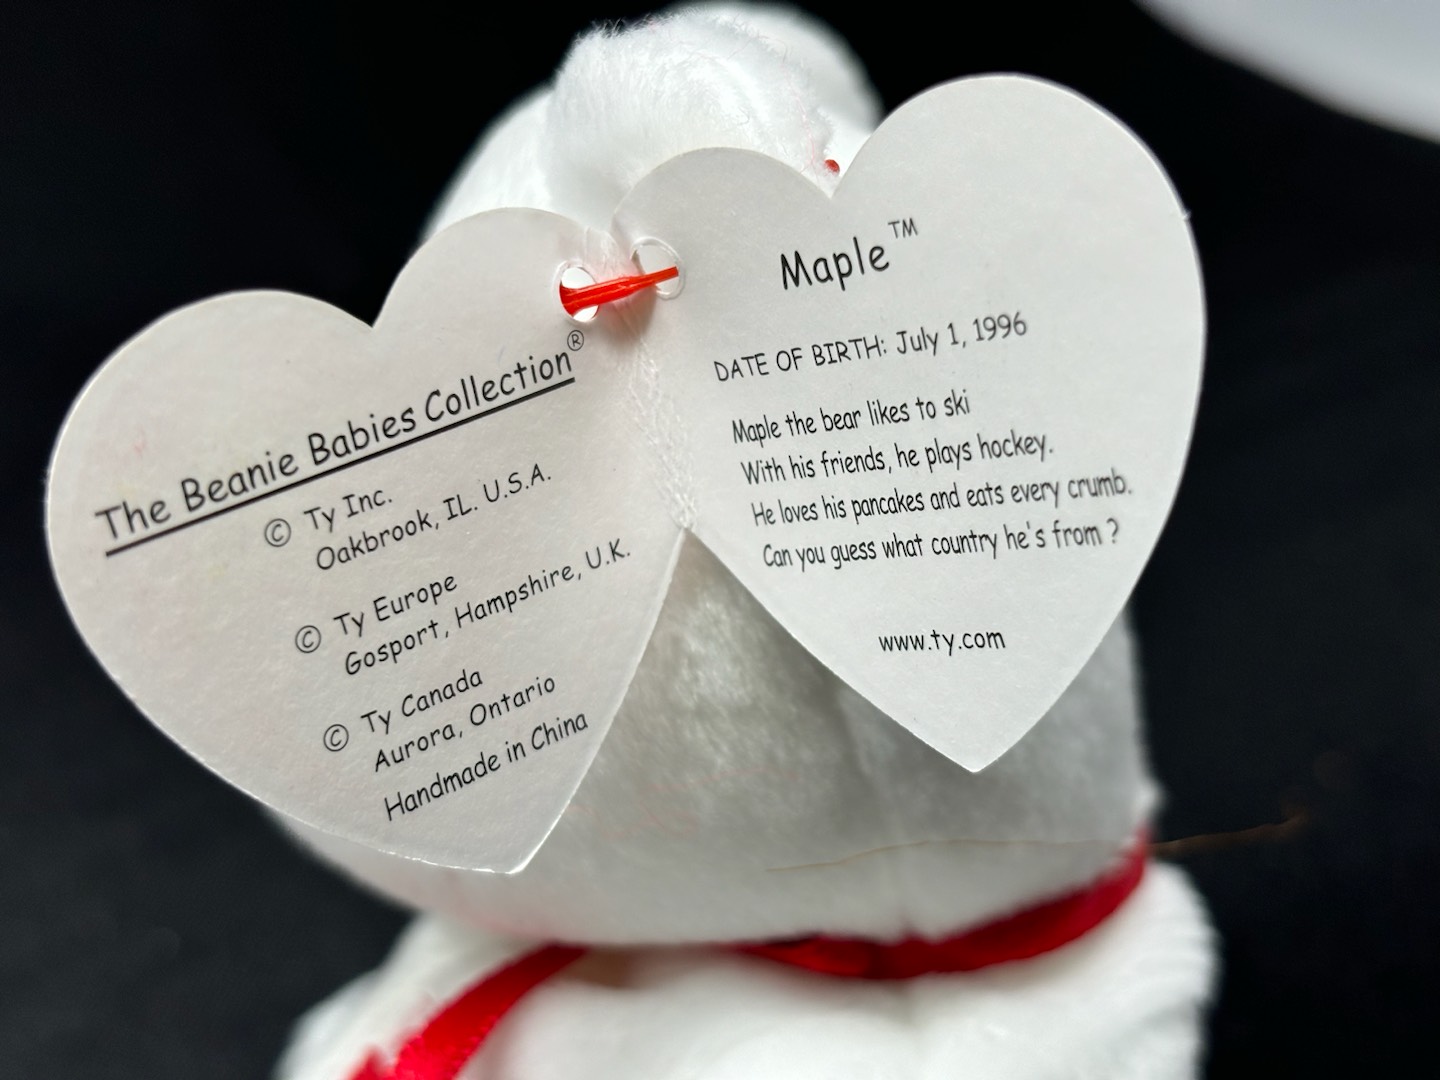 The Beanie Babies Collection®
© Ty Inc.
Oakbrook, IL. U.S.A.
© Ty Europe
Gosport, Hampshire, U.K.
© Ty Canada
Aurora, Ontario
Handmade in China
Maple™
DATE OF BIRTH: July 1, 1996
Maple the bear likes to ski
With his friends, he plays hockey.
He loves his pancakes and eats every crumb.
Can you guess what country he's from ?
www.ty.com